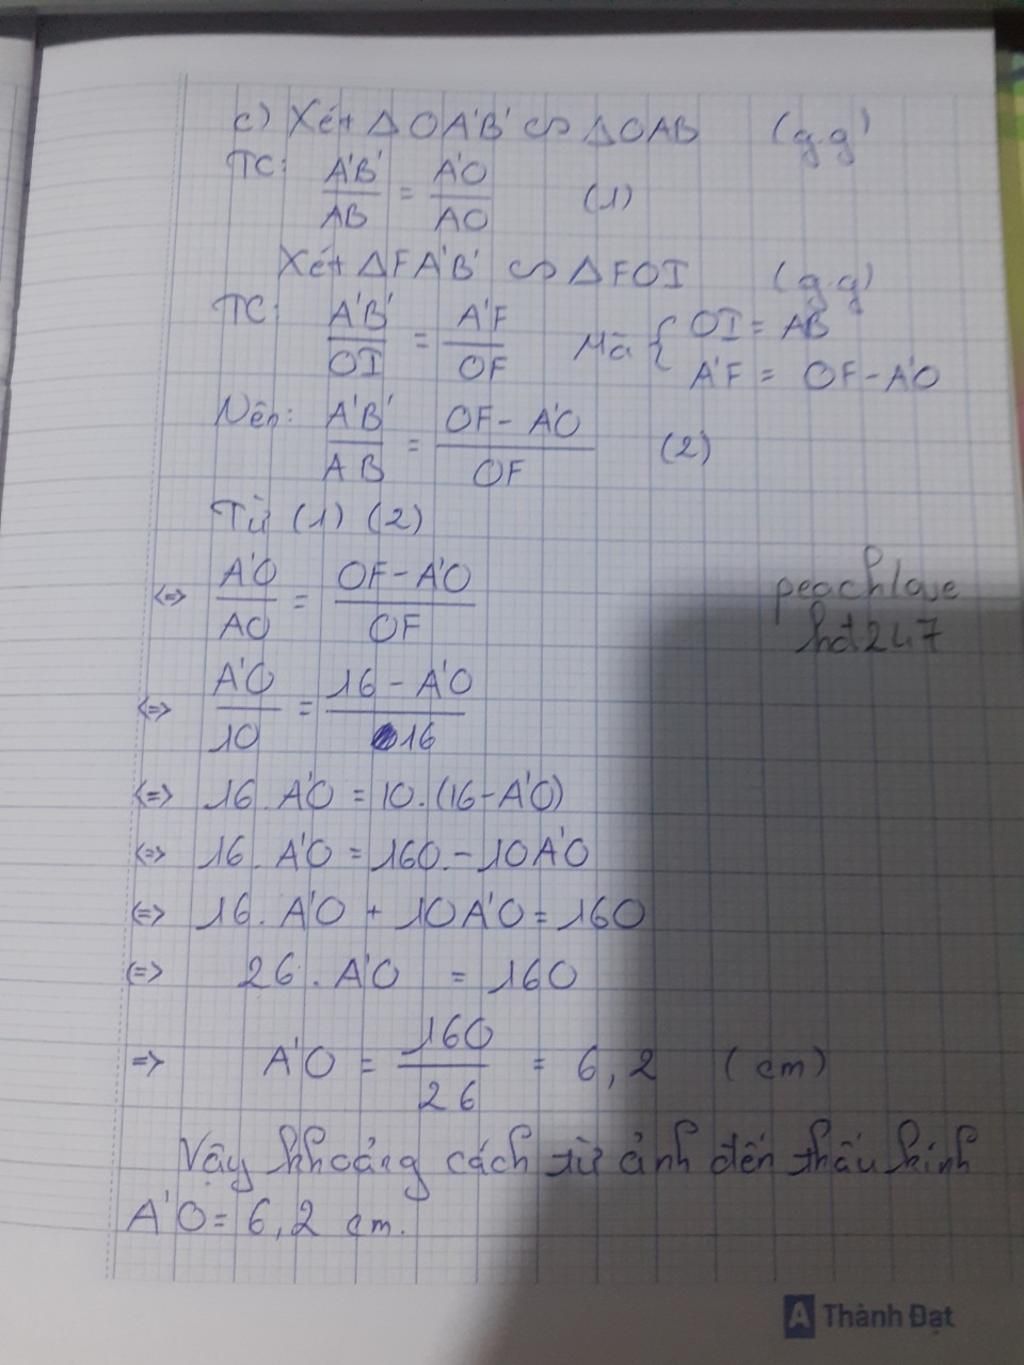 c) Xét ΔOA'B' ∽ ΔOAB (g.g)
TC: A'B'/AB = A'O/AO (1)
Xét ΔFA'B' ∽ ΔFOI (g.g)
TC: A'B'/OI = A'F/OF Mà { OI = AB
A'F = OF - A'O
Nên: A'B'/AB = OF - A'O/OF (2)
Từ (1) (2)
<=> A'O/AO = OF - A'O/OF
peachlove
hđ247
<=> A'O/10 = 16 - A'O/16
<=> 16. A'O = 10.(16-A'O)
<=> 16. A'O = 160.- 10A'O
<=> 16. A'O + 10A'O = 160
<=> 26. A'O = 160
=> A'O = 160/26 = 6,2 (cm)
Vậy khoảng cách từ ảnh đến thấu kính
A'O = 6,2 cm.
A Thành Đạt